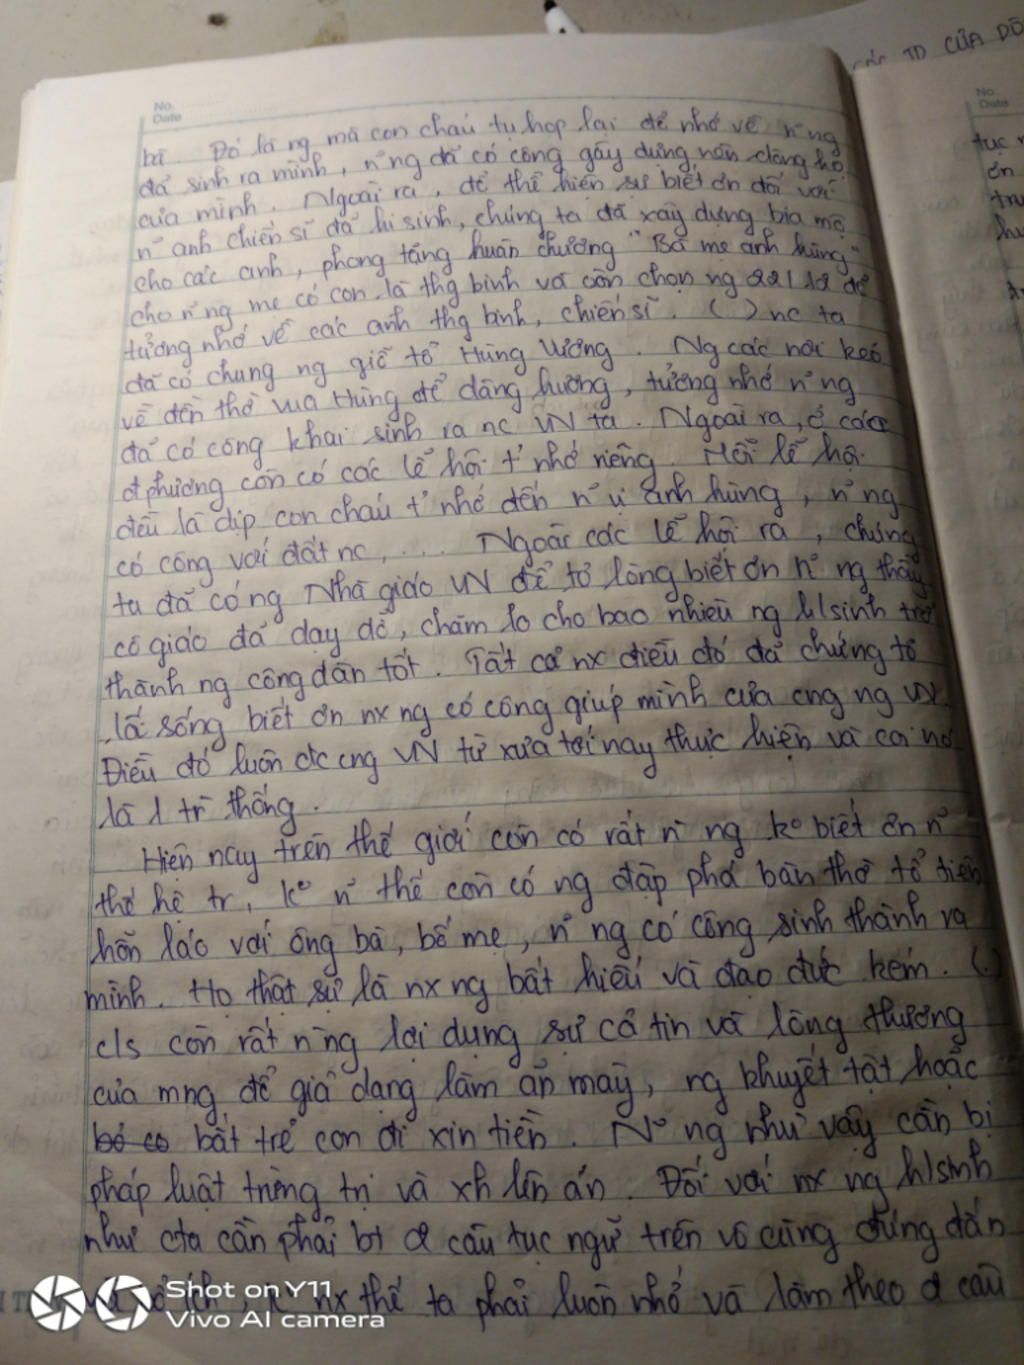 CÁC TD CỦA DÒ
No.
Date
No.
Date
bì. Đó là ng mà con cháu tụ họp lại để nhớ về n~ ng
đã sinh ra mình, n~ ng đã có công gây dựng nên dòng họ
của mình. Ngoài ra, để thể hiện sự biết ơn đối với
n~ anh chiến sĩ đã hi sinh, chúng ta đã xây dựng bia mộ
cho các anh, phong tặng huân chương "Bà mẹ anh hùng"
cho n~ ng mẹ có con là thg binh và còn chọn ng 22/12 để
tưởng nhớ về các anh thg binh, chiến sĩ. ( ) nc ta
đã có chung ng giỗ tổ Hùng Vương. Ng các nơi kéo
về đền thờ vua Hùng để dâng hương, tưởng nhớ n~ ng
đã có công khai sinh ra nc VN ta. Ngoài ra, ở các
đ phương còn có các lễ hội t' nhớ riêng. Mỗi lễ hội
đều là dịp con cháu t' nhớ đến n~ vị anh hùng, n~ ng
có công với đất nc, ... Ngoài các lễ hội ra, chúng
ta đã có ng Nhà giáo VN để tỏ lòng biết ơn n~ ng thầy
cô giáo đã dạy dỗ, chăm lo cho bao nhiêu ng h/sinh trở
thành ng công dân tốt. Tất cả nx điều đó đã chứng tỏ
lối sống biết ơn nx ng có công giúp mình của cng ng VN
Điều đó luôn đc cng VN từ xưa tới nay thực hiện và coi nó
là 1 tr` thống.
Hiện nay trên thế giới còn có rất n` ng ko biết ơn n~
thế hệ tr', ko n~ thế còn có ng đập phá bàn thờ tổ tiên
hỗn láo với ông bà, bố mẹ, n~ ng có công sinh thành ra
mình. Họ thật sự là nx ng bất hiếu và đạo đức kém. (.)
c/s còn rất n` ng lợi dụng sự cả tin và lòng thương
của mng để giả dạng làm ăn mày, ng khuyết tật hoặc
bỏ co bắt trẻ con đi xin tiền. N~ ng như vậy cần bị
pháp luật trừng trị và xh lên án. Đối với nx ng h/sinh
như cta cần phải bt 2 câu tục ngữ trên vô cùng đúng đắn
nx thế ta phải luôn nhớ và làm theo 2 câu
tục
ơn
Shot on Y11
Vivo AI camera